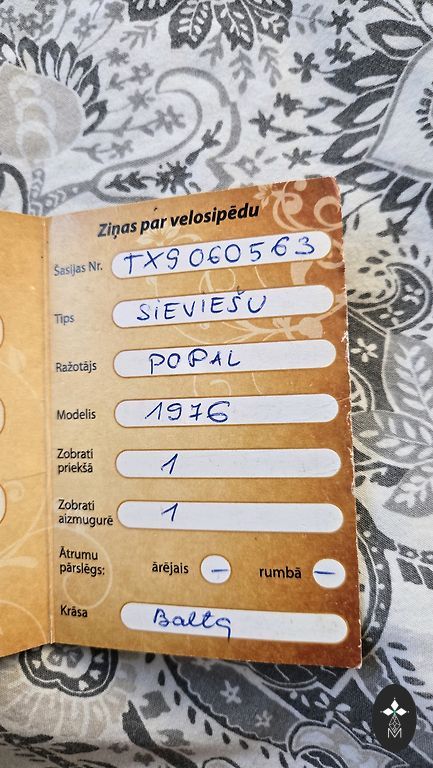 Ziņas par velosipēdu
Šasijas Nr. TX9060563
Tips SiEVIEŠU
Ražotājs POPAL
Modelis 1976
Zobrati priekšā 1
Zobrati aizmugurē 1
Ātrumu pārslēgs: ārējais – rumbā –
Krāsa Balta